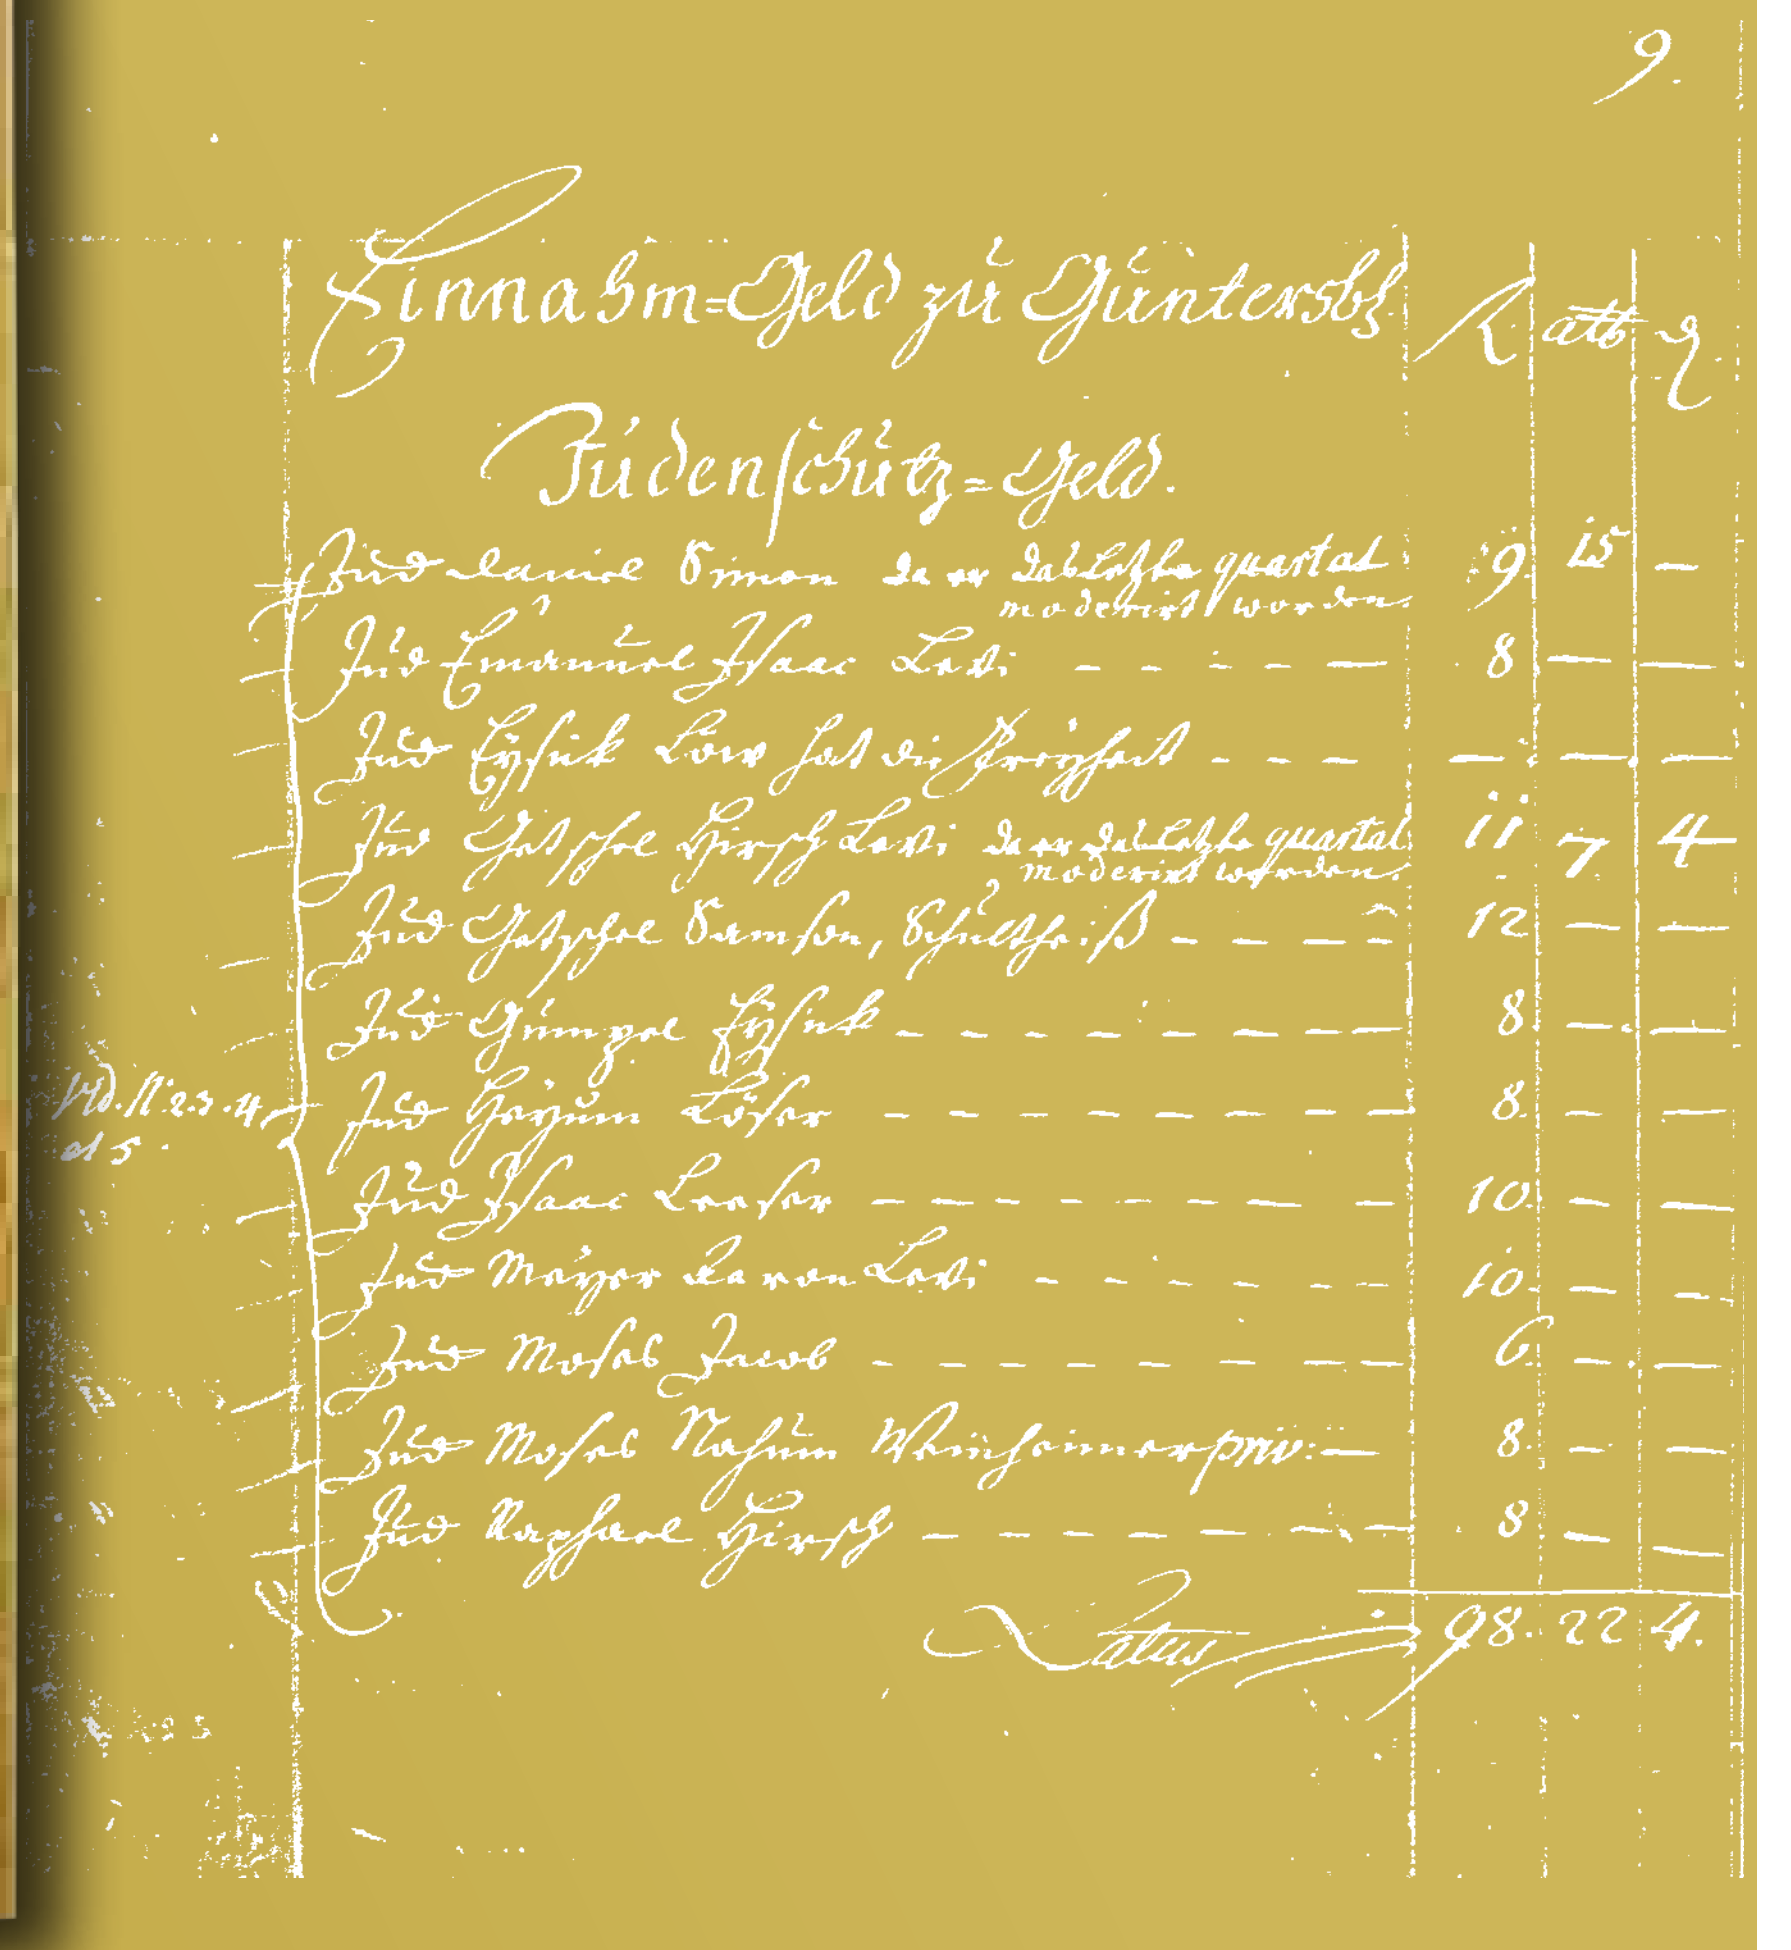 9.
Einnahm=Geld zu Güntersbl. R. alb ₰
Judenschutz=Geld.
Jud Daniel Simon da er das letzte quartal 9. 15 —
moderirt worden.
Jud Emanuel Isaac Levi - - - - — 8 — —
Jud Eysick Löw hat die Freyheit - - - — — —
Jud Götschel Hirsch Levi da er das letzte quartal 11 7. 4
moderirt worden.
Jud Götschel Samson, Schultheiß - - - - 12 — —
Jud Gümpel Eysick - - - - - - - - 8 — —
Vid. N. 2. 3. 4. Jud Heyum Löser - - - - - - - - 8. — —
et 5.
Jud Isaac Leeser - - - - - - - - 10. — —
Jud Mayer Aaron Levi - - - - - - 10. — —
Jud Moses Jacob - - - - - - - - 6 — —
Jud Moses Nahum Weinheimer priv: — 8. — —
Jud Raphael Hirsch - - - - - - - 8 — —
Latus 98. 22 4.